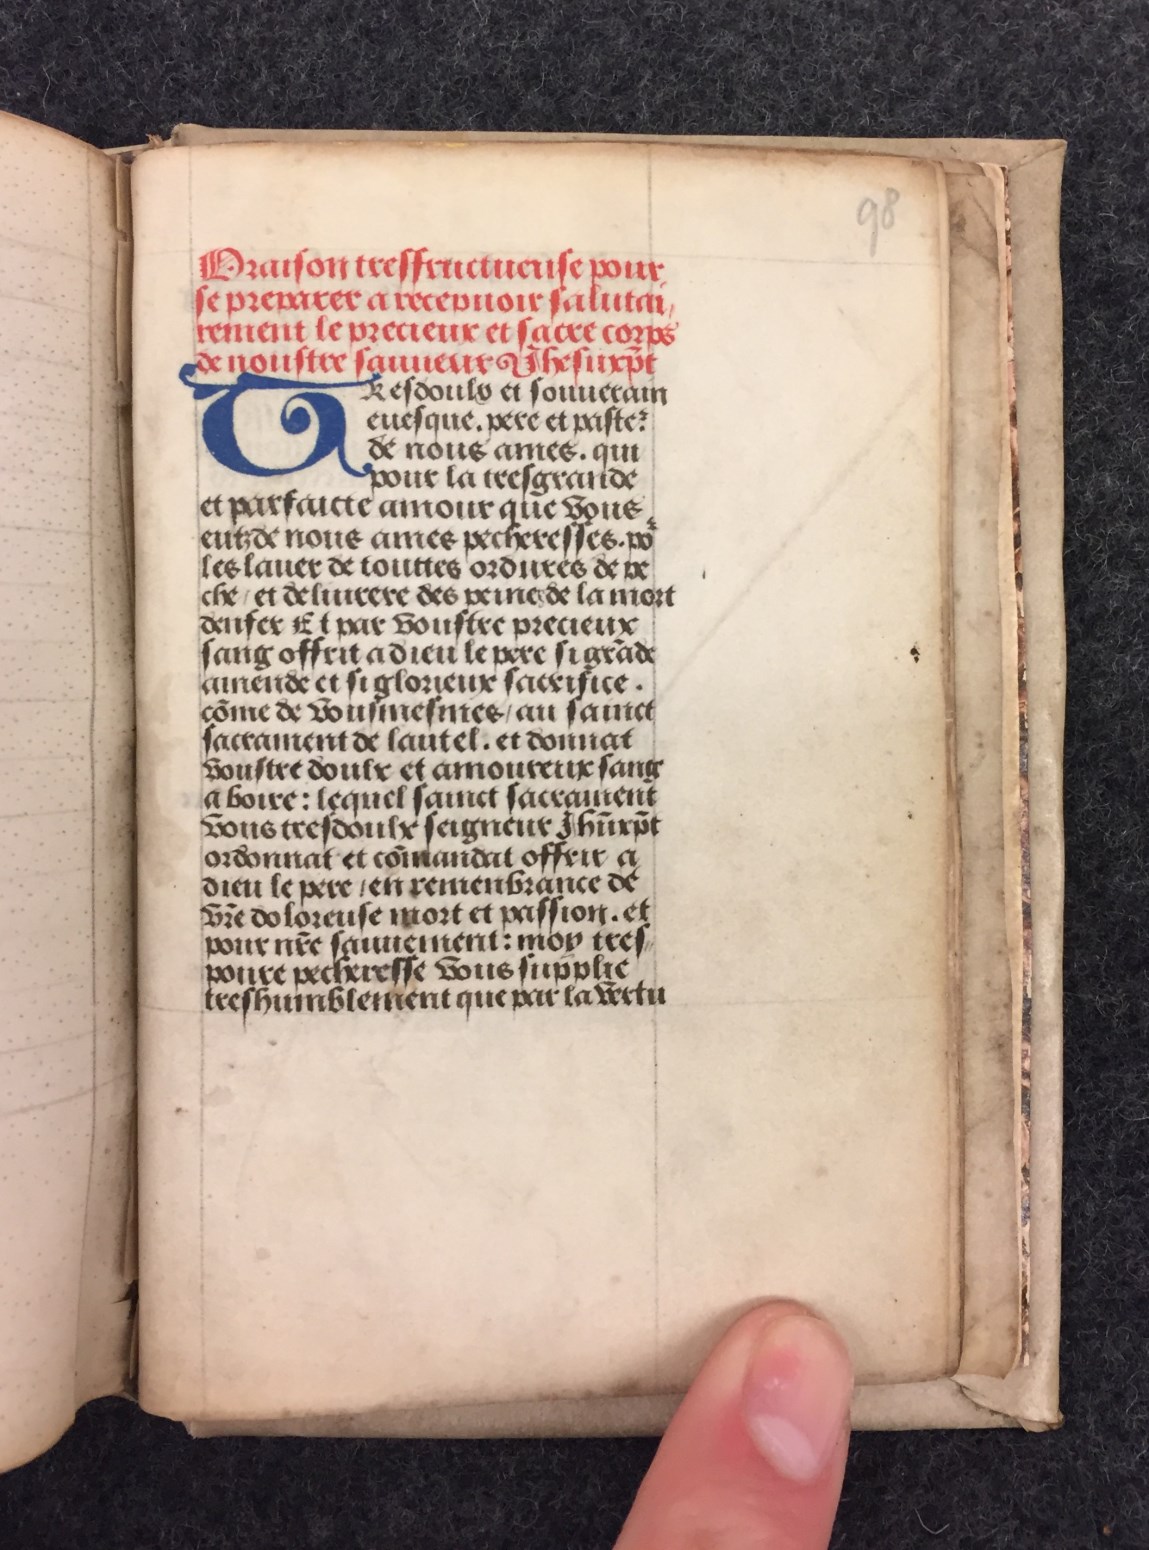 98
Oraison tresfructueuse pour
se preparer a recepuoir salutai,
rement le precieux et sacre corps
de noustre sauueur Jhesuxp̄t
TResdoulx et souuerain
euesque. pere et paste²
de nous ames. qui
pour la tresgrande
et parfaicte amour que vous
eutz de nous ames pecheresses. po²
les lauer de touttes ordures de pe
che / et deliurere des peine de la mort
denfer Et par voustre precieux
sang offrit a dieu le pere si grāde
amende et si glorieux sacrifice .
cōme de vousmesmes / au sainct
sacrament de lautel. et donnat
voustre doulx et amoureux sang
a boire : lequel sainct sacrament
vous tresdoulx seigneur Jhūxp̄t
ordonnat et cōmandat offrir a
dieu le pere / en remenbrance de
vr̄e doloreuse mort et passion. et
pour nr̄e sauuement : moy tres,,
poure pecheresse vous supplie
treshumblement que par la vertu